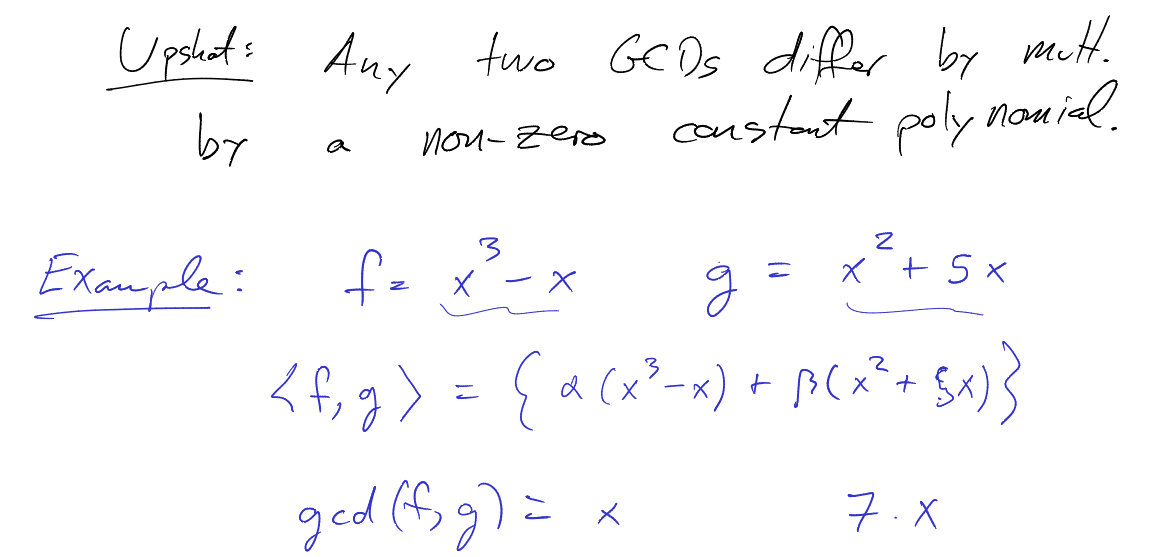 Upshot: Any two GCDs differ by mult.
by a non-zero constant polynomial.
Example: f = x³ - x g = x² + 5x
<f, g> = { α(x³-x) + β(x² + 5x) }
gcd(f, g) = x 7·x